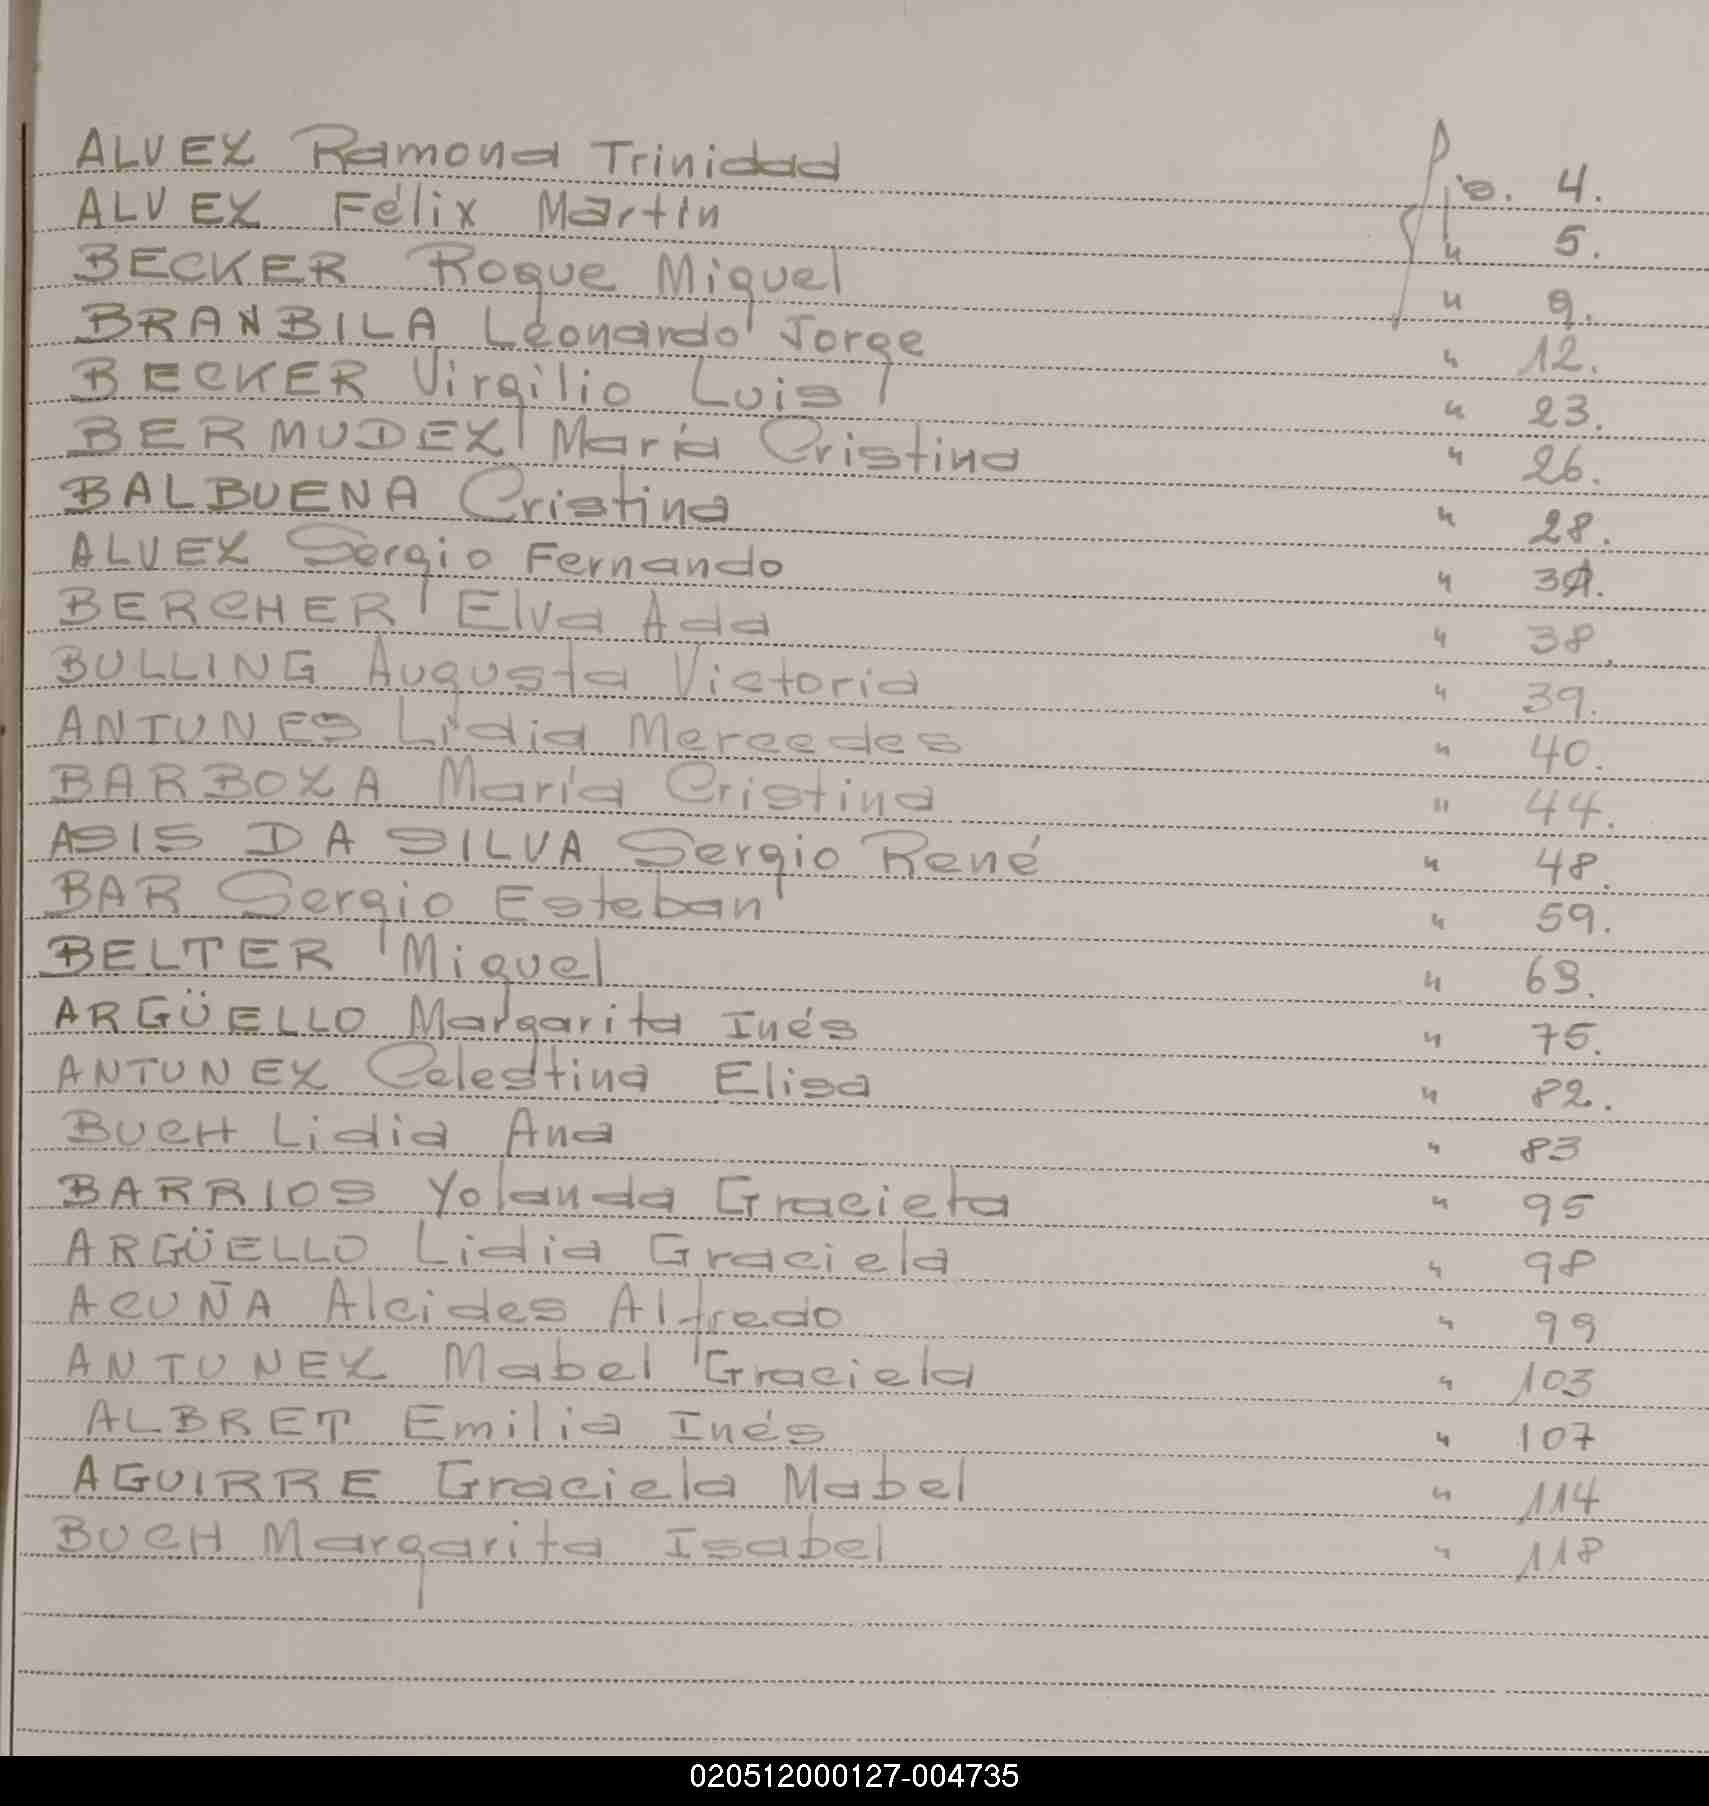 ALVEZ Ramona Trinidad fjo. 4.
ALVEZ Félix Martín " 5.
BECKER Roque Miguel " 9.
BRANBILA Leonardo Jorge " 12.
BECKER Virgilio Luis " 23.
BERMUDEZ María Cristina " 26.
BALBUENA Cristina " 28.
ALVEZ Sergio Fernando "
BERCHER Elva Ada " 38.
BULLING Augusta Victoria " 39.
ANTUNES Lidia Mercedes " 40.
BARBOZA María Cristina " 44.
ASIS DA SILVA Sergio René " 48.
BAR Sergio Esteban " 59.
BELTER Miguel " 63.
ARGÜELLO Margarita Inés " 75.
ANTUNEZ Celestina Elisa " 82.
BUCH Lidia Ana " 83
BARRIOS Yolanda Graciela " 95
ARGÜELLO Lidia Graciela " 98
ACUÑA Alcides Alfredo " 99
ANTUNEZ Mabel Graciela " 103
ALBRET Emilia Inés " 107
AGUIRRE Graciela Mabel " 114
BUCH Margarita Isabel " 118
020512000127-004735